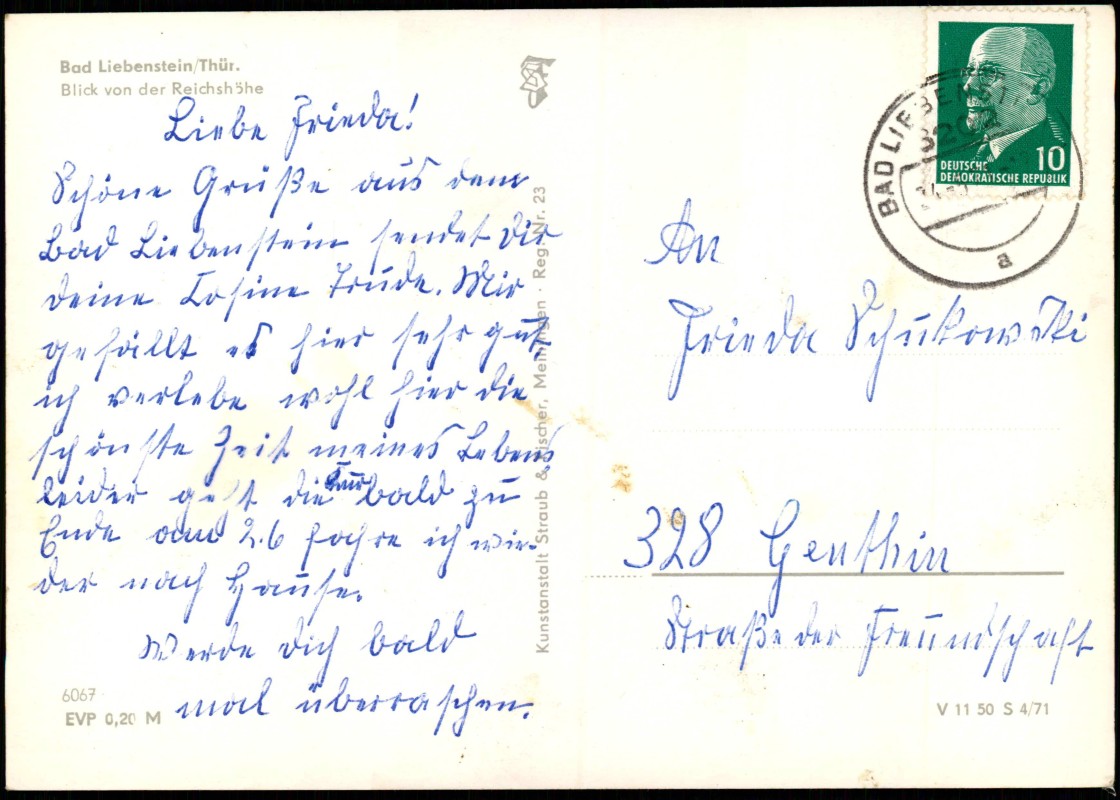 Bad Liebenstein/Thür.
Blick von der Reichshöhe
Liebe Frieda!
Schöne Grüße aus dem
Bad Liebenstein sendet Dir
deine Cosine Trude. Mir
gefällt es hier sehr gut,
ich verlebe wohl hier die
schönste Zeit meines Lebens
leider geht die Kur bald zu
Ende am 2.6 fahre ich wie-
der nach Hause.
Werde dich bald
mal überraschen.
6067
EVP 0,20 M
Kunstanstalt Straub & Fischer, Meiningen · Reg.-Nr. 23
BAD LIEBENSTEIN
3202
a
10
DEUTSCHE
DEMOKRATISCHE REPUBLIK
An
Frieda Schukowski
328 Genthin
Straße der Freundschaft
V 11 50 S 4/71